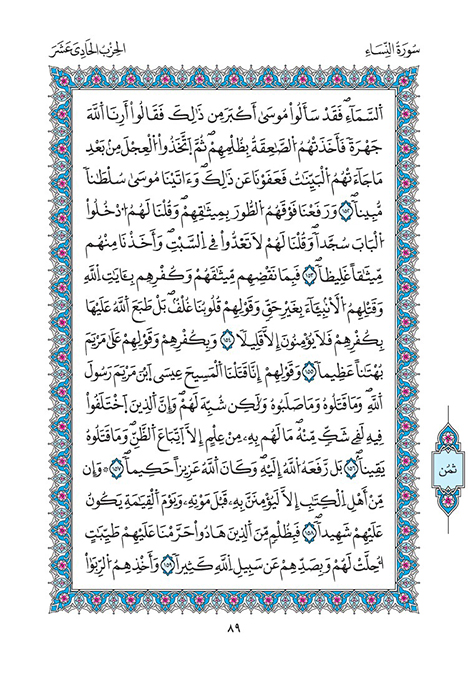 سُورَةُ النِّسَاءِ
الحِزْبُ الحَادِيَ عَشَرَ
اَ۬لسَّمَآءِۖ فَقَدْ سَأَلُواْ مُوس۪ىٰٓ أَكْبَرَ مِن ذَٰلِكَ فَقَالُوٓاْ أَرِنَا اَ۬للَّهَ
جَهْرَةٗ فَأَخَذَتْهُمُ اُ۬لصَّٰعِقَةُ بِظُلْمِهِمْۖ ثُمَّ اَ۪تَّخَذُواْ اُ۬لْعِجْلَ مِنۢ بَعْدِ
مَا جَآءَتْهُمُ اُ۬لْبَيِّنَٰتُ فَعَفَوْنَا عَن ذَٰلِكَۖ وَءَاتَيْنَا مُوس۪ىٰ سُلْطَٰناٗ
مُّبِيناٗۖ ١٥٢ وَرَفَعْنَا فَوْقَهُمُ اُ۬لطُّورَ بِمِيثَٰقِهِمْۖ وَقُلْنَا لَهُمُ اُ۟دْخُلُواْ
اُ۬لْبَابَ سُجَّداٗۖ وَقُلْنَا لَهُمْ لَا تَعَدُّواْ فِے اِ۬لسَّبْتِۖ وَأَخَذْنَا مِنْهُم
مِّيثَٰقاً غَلِيظاٗۖ ١٥٣ فَبِمَا نَقْضِهِم مِّيثَٰقَهُمْ وَكُفْرِهِم بِـَٔايَٰتِ اِ۬للَّهِ
وَقَتْلِهِمُ اُ۬لَانۢبِئَآءَ بِغَيْرِ حَقّٖ وَقَوْلِهِمْ قُلُوبُنَا غُلْفُۢۖ بَلْ طَبَعَ اَ۬للَّهُ عَلَيْهَا
بِكُفْرِهِمْ فَلَا يُومِنُونَ إِلَّا قَلِيلاٗۖ ١٥٤ وَبِكُفْرِهِمْ وَقَوْلِهِمْ عَلَىٰ مَرْيَمَ
بُهْتَٰناً عَظِيماٗ ١٥٥ وَقَوْلِهِمُۥٓ إِنَّا قَتَلْنَا اَ۬لْمَسِيحَ عِيسَى اَ۪بْنَ مَرْيَمَ رَسُولَ
اَ۬للَّهِۖ وَمَا قَتَلُوهُ وَمَا صَلَبُوهُ وَلَٰكِن شُبِّهَ لَهُمْۖ وَإِنَّ اَ۬لذِينَ اَ۪خْتَلَفُواْ
فِيهِ لَفِے شَكّٖ مِّنْهُۖ مَا لَهُم بِهِۦ مِنْ عِلْمٍ اِلَّا اَ۪تِّبَاعَ اَ۬لظَّنِّۖ وَمَا قَتَلُوهُ
يَقِيناَۢۖ ١٥٦ بَل رَّفَعَهُ اُ۬للَّهُ إِلَيْهِۖ وَكَانَ اَ۬للَّهُ عَزِيزاً حَكِيماٗۖ ١٥٧ ۞وَإِن
مِّنَ اَهْلِ اِ۬لْكِتَٰبِ إِلَّا لَيُومِنَنَّ بِهِۦ قَبْلَ مَوْتِهِۦۖ وَيَوْمَ اَ۬لْقِيَٰمَةِ يَكُونُ
عَلَيْهِمْ شَهِيداٗۖ ١٥٨ فَبِظُلْمٖ مِّنَ اَ۬لذِينَ هَادُواْ حَرَّمْنَا عَلَيْهِمْ طَيِّبَٰتٍ
اُ۟حِلَّتْ لَهُمْ وَبِصَدِّهِمْ عَن سَبِيلِ اِ۬للَّهِ كَثِيراٗ ١٥٩ وَأَخْذِهِمُ اُ۬لرِّبَوٰاْ
ثُمُن
٨٩